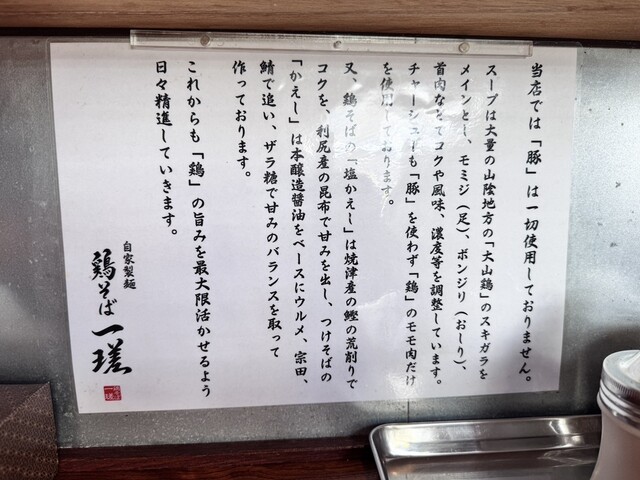 当店では「豚」は一切使用しておりません。
スープは大量の山陰地方の「大山鶏」のスキガラを
メインとし、モミジ（足）、ボンジリ（おしり）、
首肉などでコクや風味、濃度等を調整しています。
チャーシューも「豚」を使わず「鶏」のモモ肉だけ
を使用しております。
又、鶏そばの「塩かえし」は焼津産の鰹の荒削りで
コクを、利尻産の昆布で甘みを出し、つけそばの
「かえし」は本醸造醤油をベースにウルメ、宗田、
鯖で追い、ザラ糖で甘みのバランスを取って
作っております。
これからも「鶏」の旨みを最大限活かせるよう
日々精進していきます。
自家製麺
鶏そば一瑳